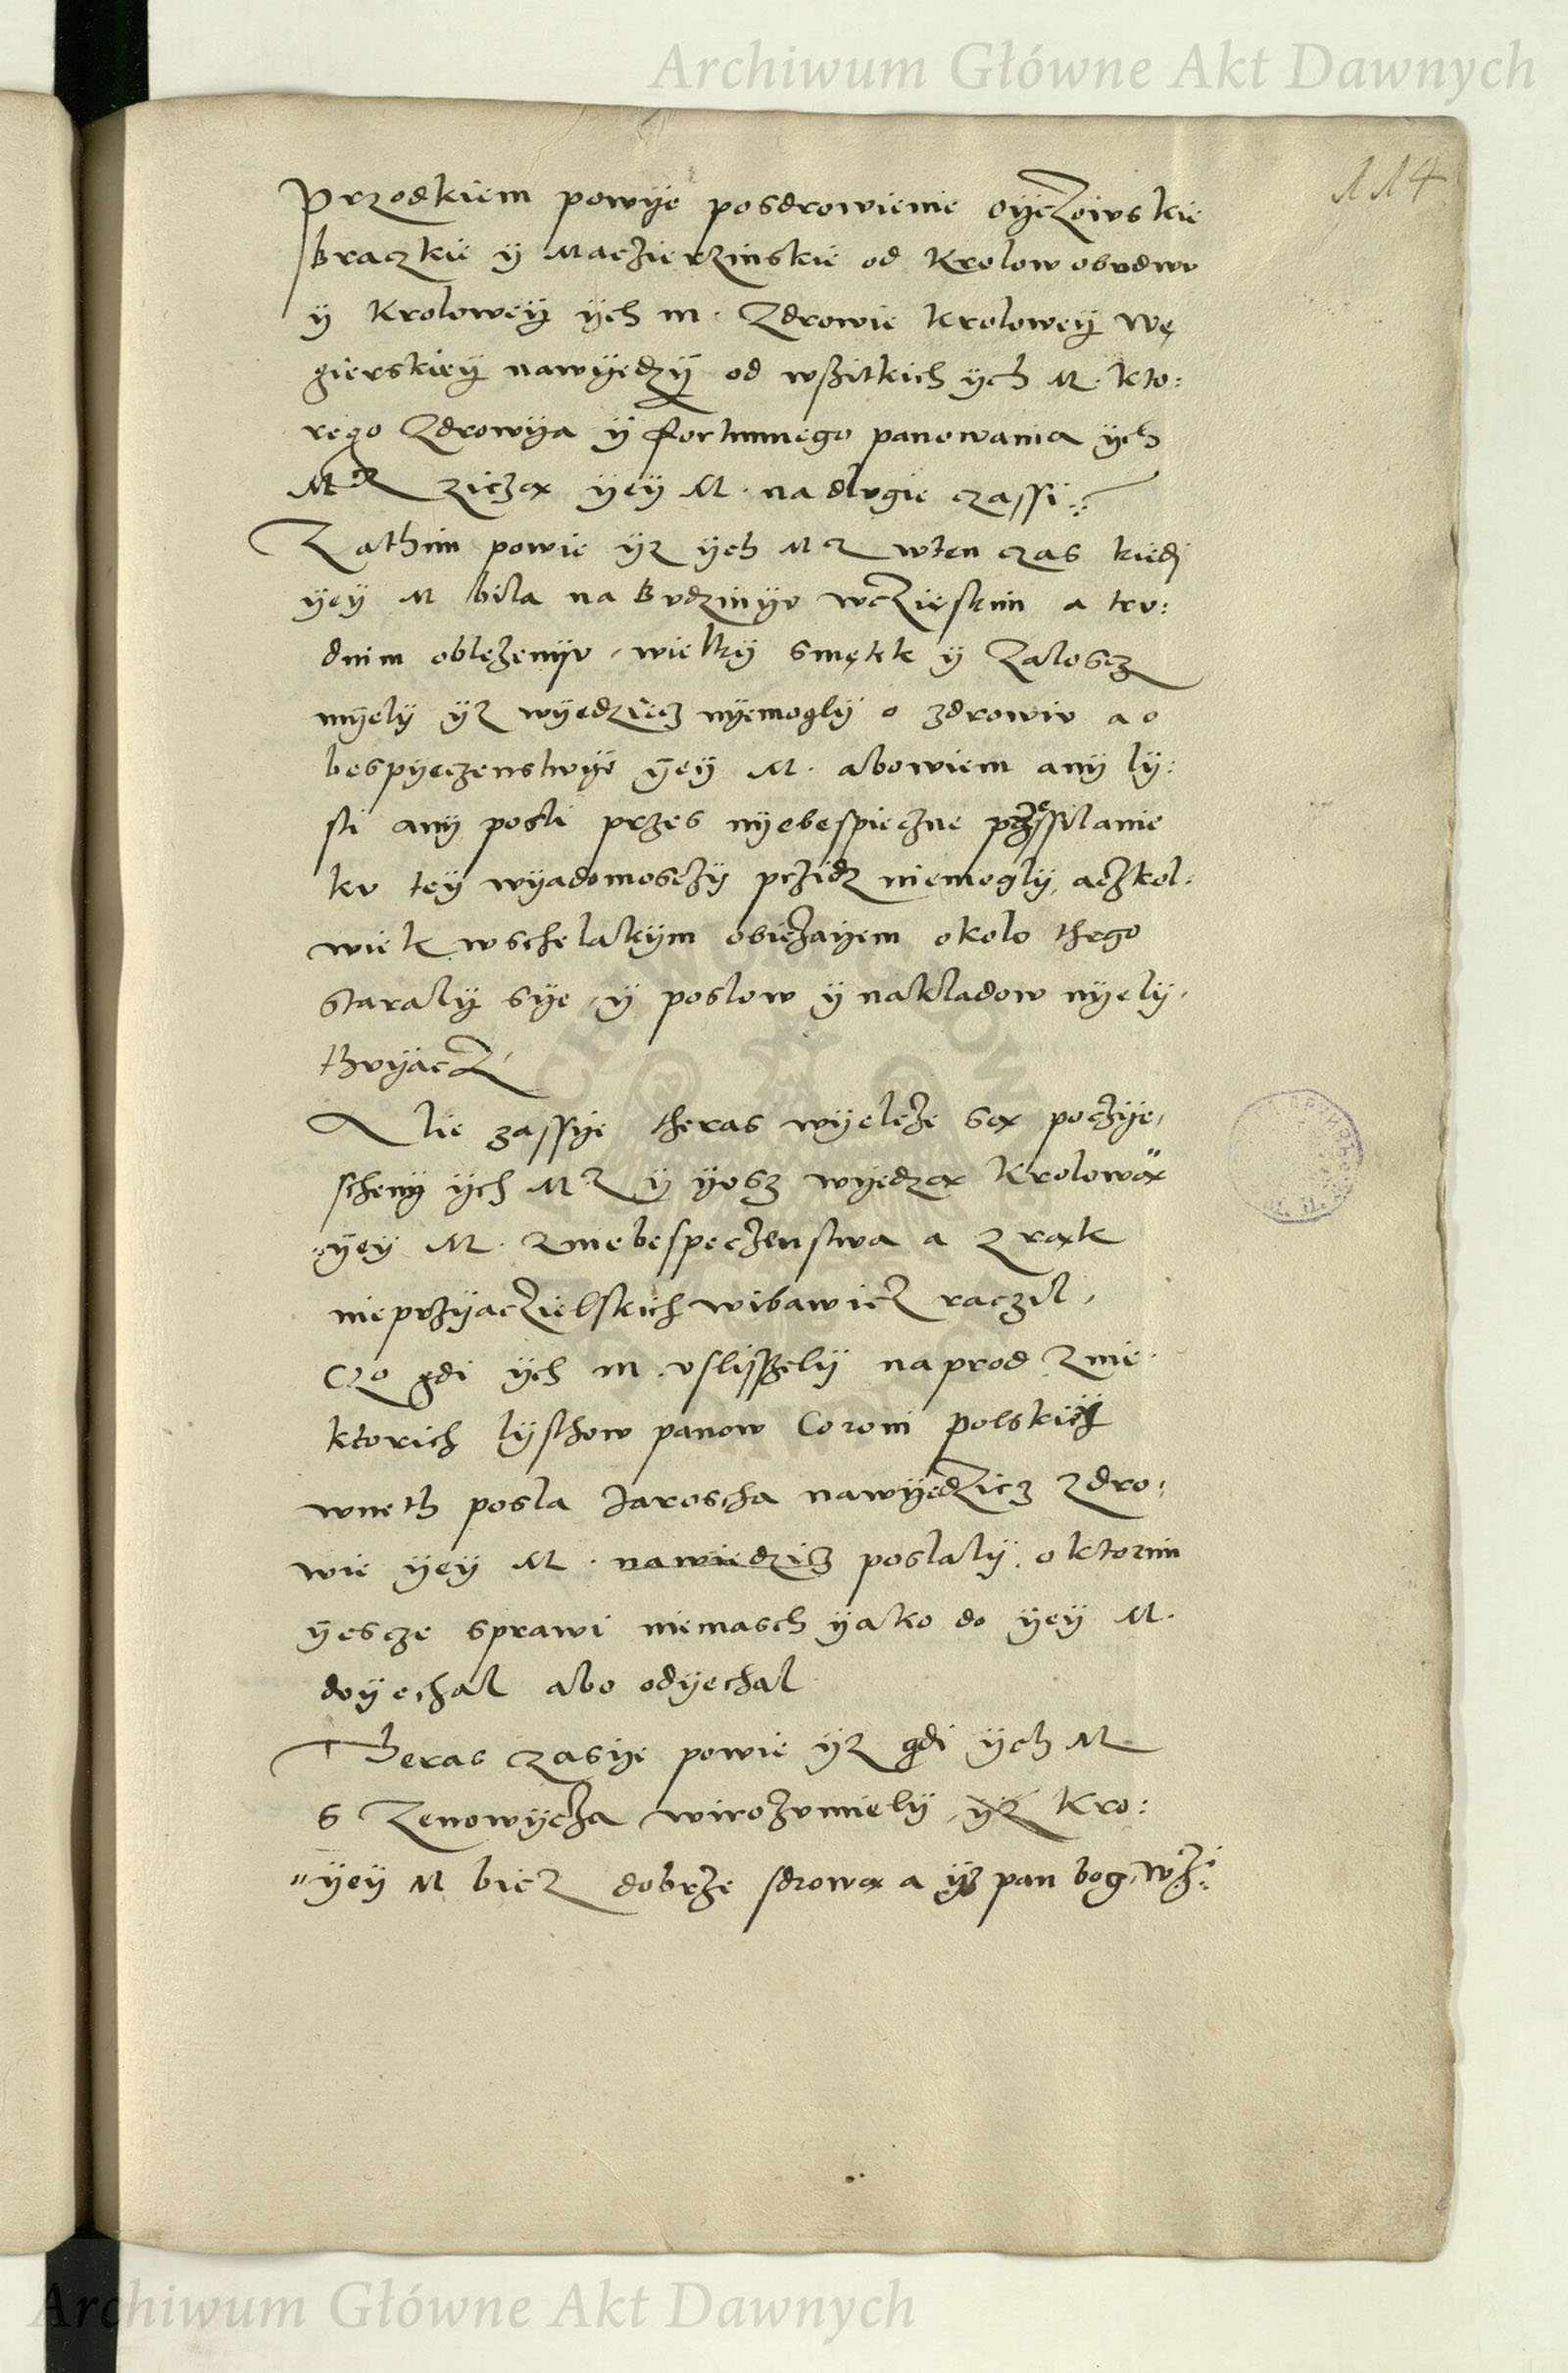 Archiwum Główne Akt Dawnych
114
Przodkiem powÿe posdrowienie oÿczowskie
braczkie ÿ Maczierzinskie od Krolow obudwu
ÿ Kroloweÿ ÿch m. Zdrowie kroloweÿ wę
gierskieÿ nawÿedzÿ od wßitkich ÿch M. kto:
rego Zdrowÿa ÿ fortunnego panowania ÿch
Mcz ziczax ÿeÿ M. na dlugie czassi
Zathim powie ÿz ÿch Mcz wten czas kiedi
ÿeÿ M bila na Budzinÿu wcziesknim a tru:
dnim oblezenÿu, wielkÿ smętek ÿ Zaloscz
mÿelÿ ÿz wÿedziecz nÿemoglÿ o zdrowiu a o
bespÿeczenstwÿe ÿeÿ M. abowiem anÿ lÿ:
sti anÿ posli przes nÿebespieczne przessilanie
ku teÿ wÿadomosczÿ przidz niemoglÿ, aczkol:
wiek wschelakÿm obiczaÿem okolo thego
staralÿ sÿe, ÿ poslow ÿ nakladow nÿelÿ,
thuÿacz
Alie zassÿe theras wÿelcze sax poczÿe,
schenÿ ÿch Mcz ÿ ÿosz wÿedzax Krolowax
ÿeÿ M. zniebespeczenstwa a z rąxk
nieprzÿaczielskich wibawicz raczil,
Czo gdi ÿch m uslÿßelÿ naprod znie
ktorich lÿsthow panow Coroni polskieÿ
wneth posla Jaroscha nawÿedzicz zdro:
wie ÿeÿ M. nawiedzicz poslalÿ, o ktorim
ÿescze sprawi niemasch ÿako do ÿeÿ M.
doÿechal abo odÿechal
Theras czasÿe powie ÿz gdi ÿch M
s Zenowÿcza wirozumielÿ, ÿz Kro:
ÿeÿ M bicz dobrze sdrowax a ÿz pan bog,
Archiwum Główne Akt Dawnych